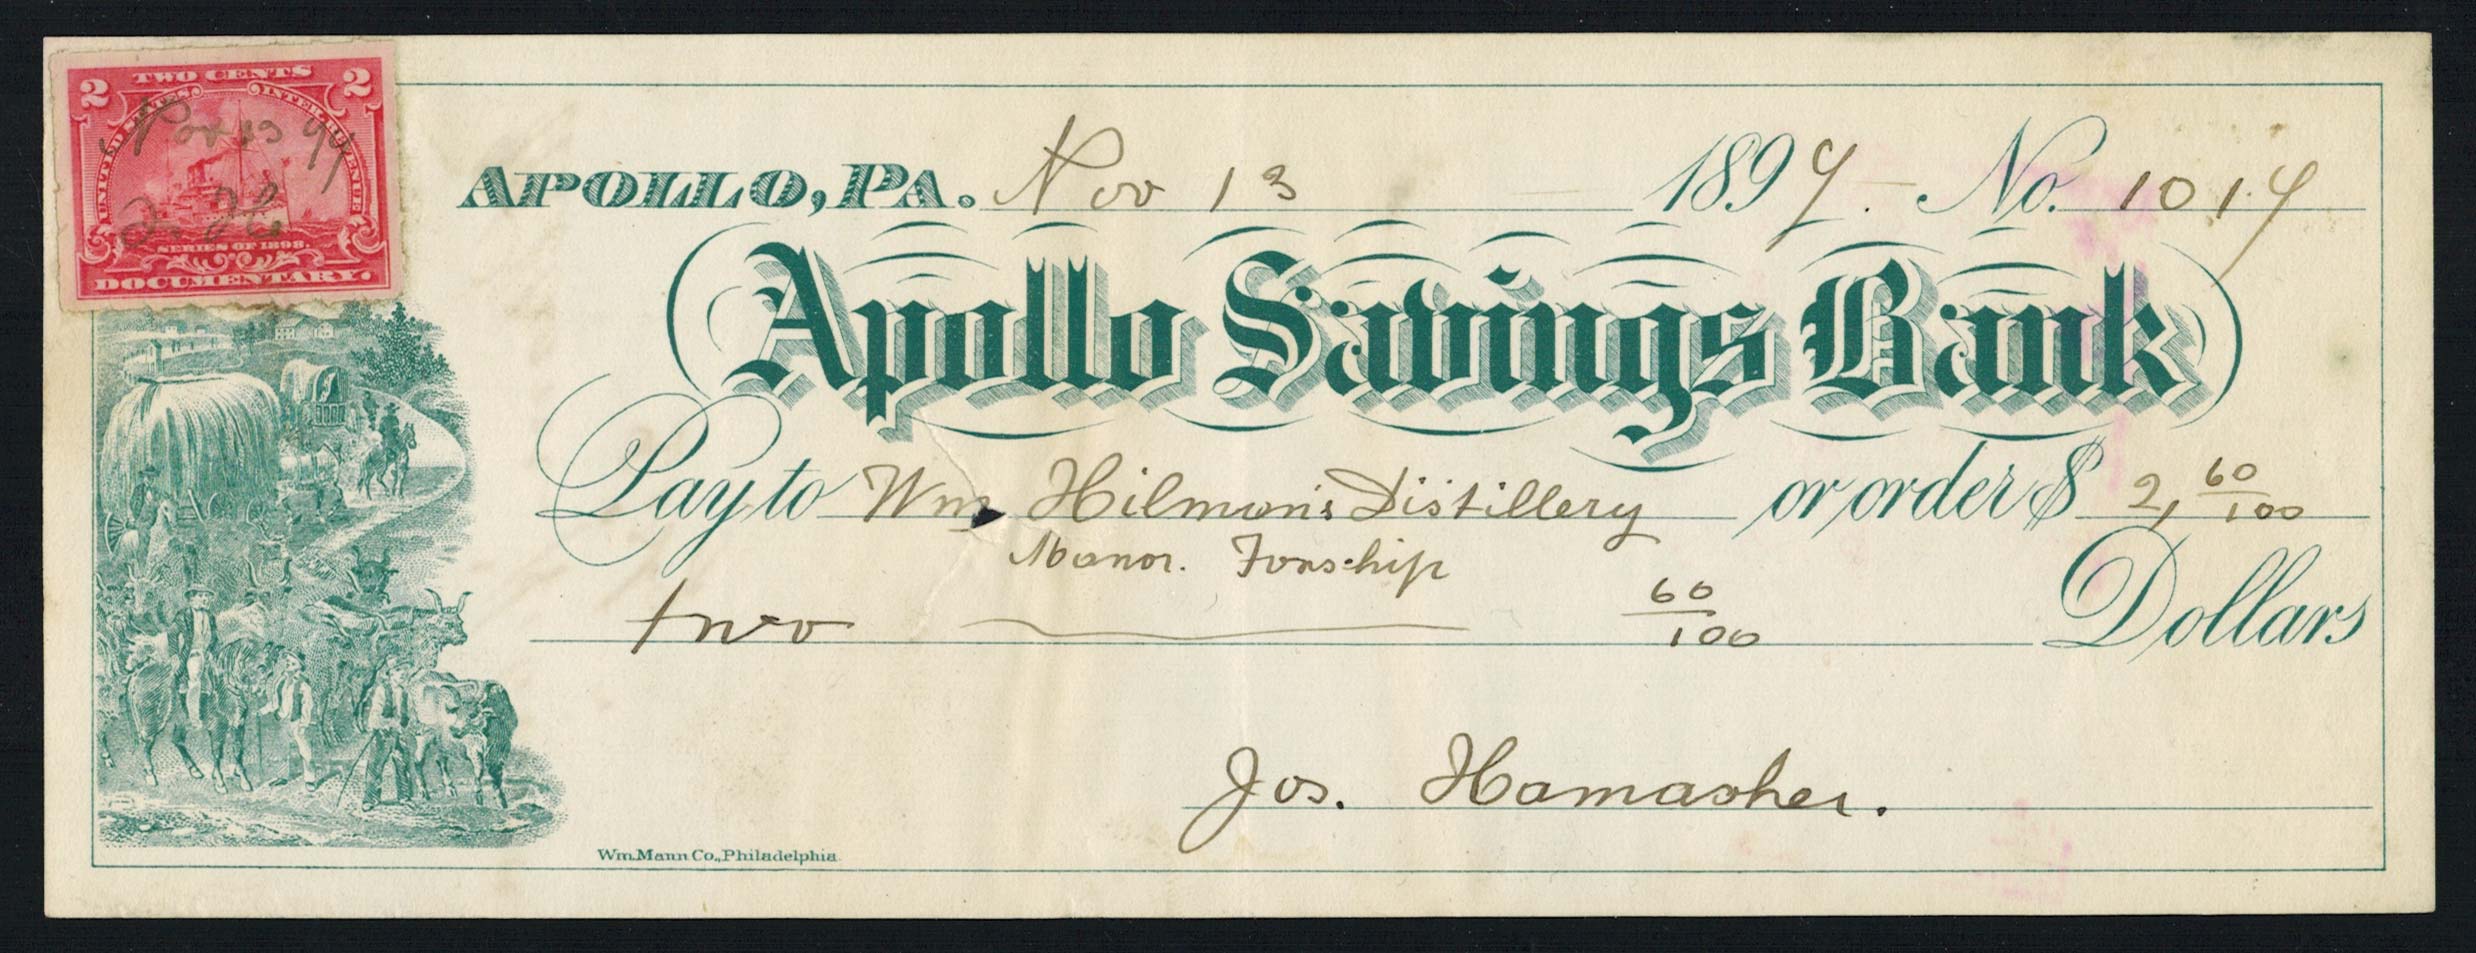 2 TWO CENTS 2
UNITED STATES INTER. REVENUE
Nov 13 99
J. H.
SERIES OF 1898.
DOCUMENTARY.
APOLLO, PA. Nov 13 1899. No. 1019
Apollo Savings Bank
Pay to Wm Hilmon's Distillery or order $ 2, 60/100
Manor. Tonship
two 60/100 Dollars
Jos. Hamasher.
Wm. Mann Co., Philadelphia.